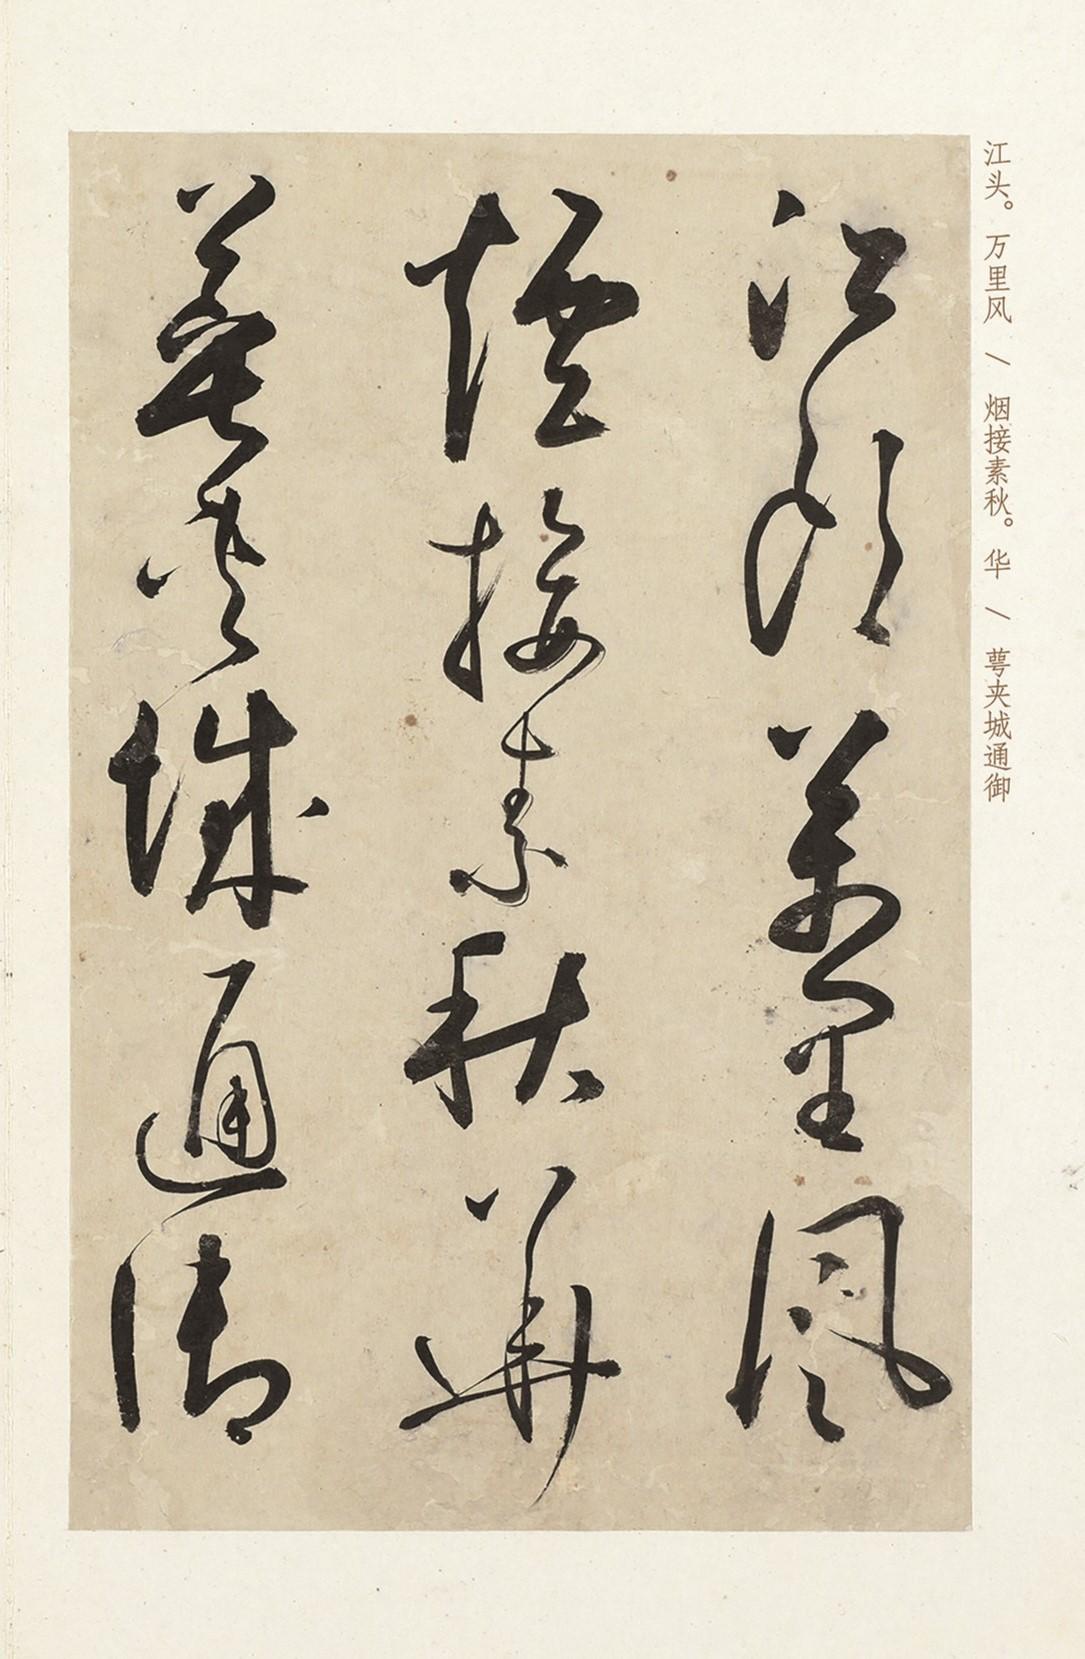 江头。万里风 \ 烟接素秋。华 \ 萼夹城通御
江頭萬里風
煙接素秋華
萼夾城通御